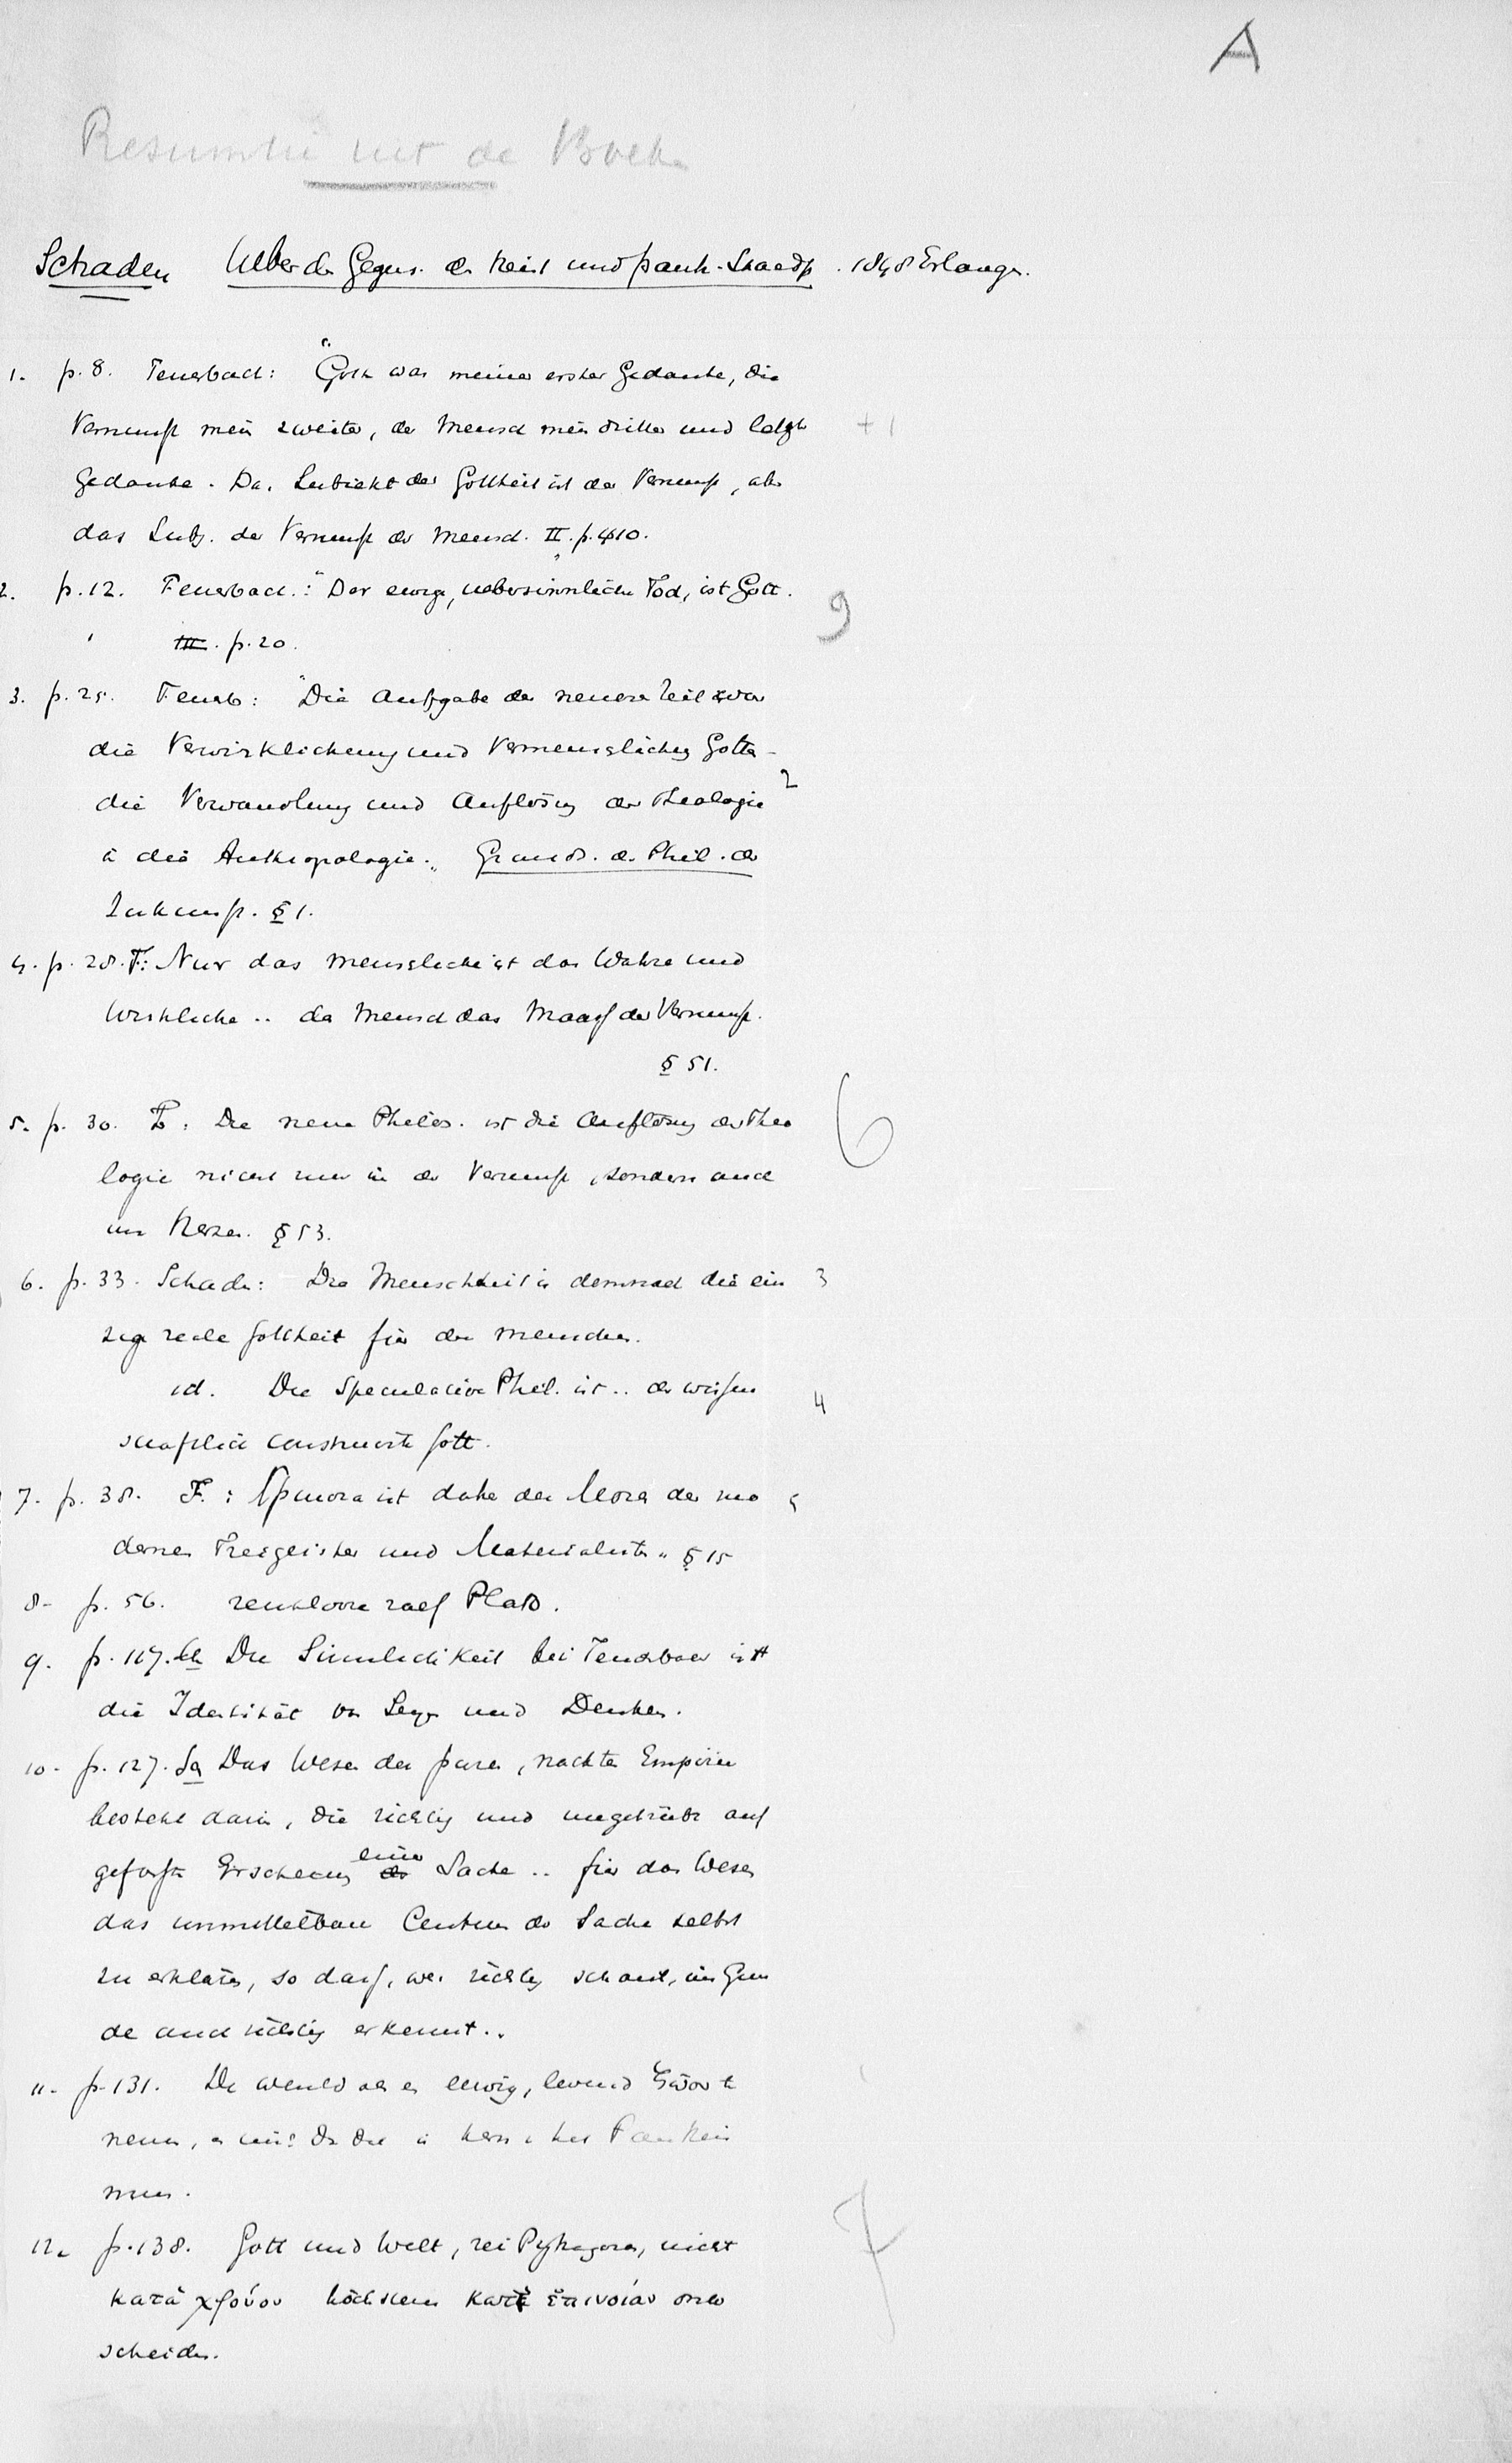 A
uit de
Schaden Ueber d. Gegens. d. theist und panth. Standp. 1848 Erlangen.
1. p. 8. Feuerbach: "Gott war meiner erster Gedanke, die
Vernunft mein zweiter, der Mensch mein dritter und letzter +1
Gedanke. Das Subiekt der Gottheit ist der Vernunft, aber
das Subj. der Vernunft der Mensch. II. p. 410."
2. p. 12. Feuerbach.: "Der ewige, uebersinnliche Tod, ist Gott. 9
III. p. 20.
3. p. 25. Feuerb: "Die Aufgabe der neueren Zeit war
die Verwirklichung und Vermenslichung Gottes –
die Verwandlung und Auflösung der Theologie 2
in die Anthropologie." Grunds. d. Phil. der
Zukunft. § 1.
4. p. 28. F: Nur das Menslichе ist das Wahre und
Wirkliche .. der Mensch das Maass der Vernunft.
§ 51.
5. p. 30. F: Die neue Philos. ist die Auflösung der Theo 6
logie nicht nur in der Vernunft, sondern auch
im Herzen. § 53.
6. p. 33. Schaden: Die Menschheit is demnach die ein 3
zige reale Gottheit für den Menschen.
id. Die Speculative Phil. ist .. der wissen 4
schaftlich construirte Gott.
7. p. 38. F.: Spinoza ist daher der Mozes der mo 5
dernen Freigeister und Materialisten" § 15
8. p. 56. Plato.
9. p. 117. Die Sinnlichkeit bei Feuerbach ist
die Identität von Seyn und Denken.
10. p. 127. Das Wesen der puren, nackten Empirie
besteht darin, die richtig und ungetrübt auf
gefasste Erscheinung einer Sache .. für das Wesen
das unmittelbare Centrum der Sache selbst
zu erklären, so dass, wer richtig schaut, im Grun
de auch richtig erkennt..
11. p. 131. De wereld als een eeuwig, levend ζῶον te
12. p. 138. Gott und Welt, bei Pythagoras, nicht 7
κατὰ χρόνον höchstens κατ' ἐπινοίαν
scheiden.